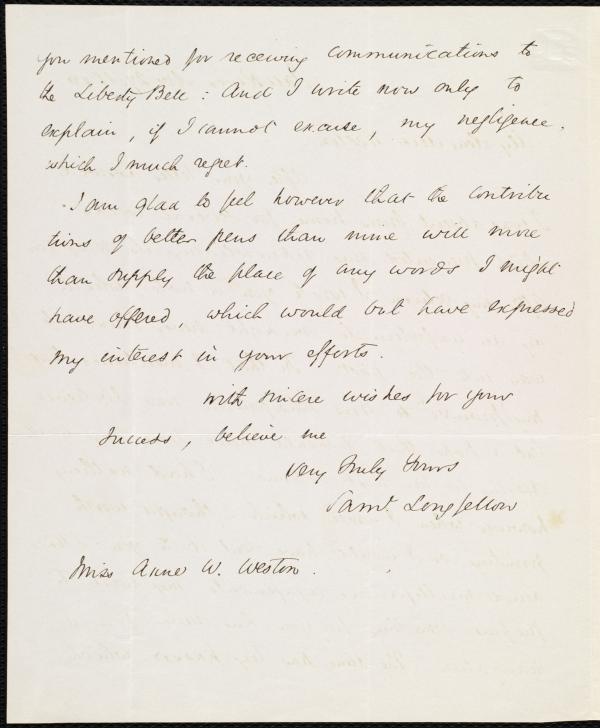 you mentioned for receiving communications to
the Liberty Bell : And I write now only to
explain, if I cannot excuse, my negligence,
which I much regret.
I am glad to feel however that the contribu
tions of better pens than mine will more
than supply the place of any words I might
have offered, which would but have expressed
my interest in your efforts.
with sincere wishes for your
success, believe me
very truly Yours
Saml. Longfellow
Miss Anne W. Weston.